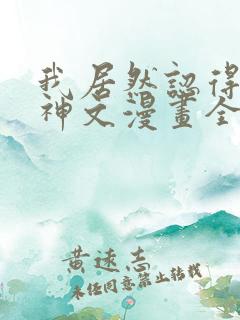 我居然認得
神文漫畫全
黄遠志
未经同意禁止转载